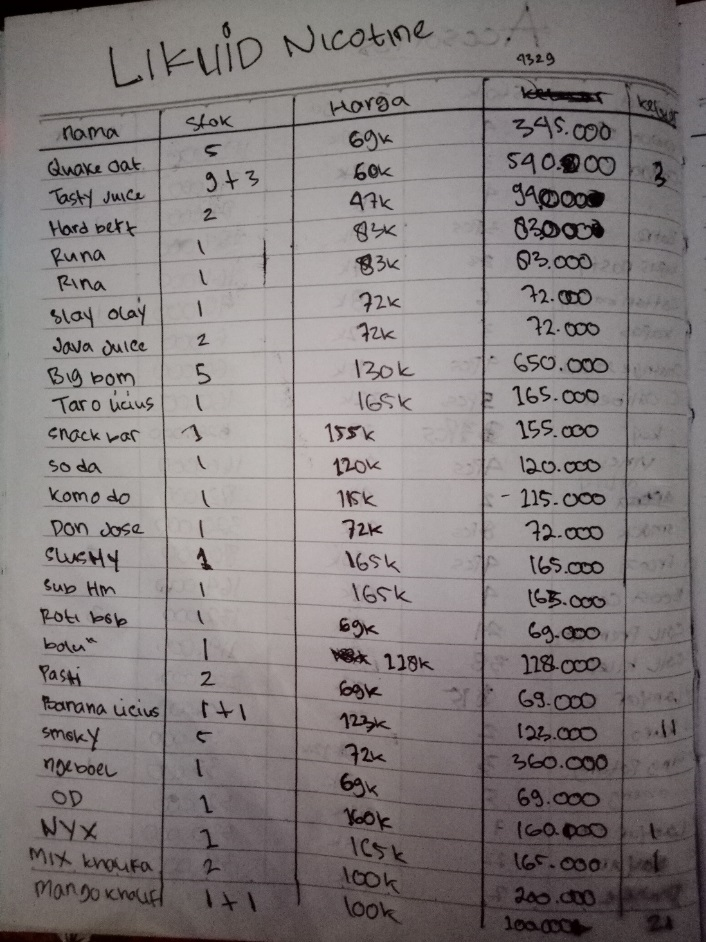 LIKUID Nicotine
4329
nama stok Harga keluar
Quake oat 5 69k 345.000
Tasty Juice 9+3 60k 540.000 3
Hard bett 2 47k 94.0000
Runa 1 83k 83.0000
Rina 1 83k 83.000
Slay olay 1 72k 72.000
Java Juice 2 72k 72.000
Big bom 5 130k 650.000
Taro licius 1 165k 165.000
snack bar 1 155k 155.000
soda 1 120k 120.000
komodo 1 115k - 115.000
Don Jose 1 72k 72.000
SLUSHY 1 165k 165.000
Sub Hm 1 165k 165.000
Roti bsb 1 69k 69.000
bolu" 1 118k 118.000
Pasti 2 69k 69.000
Banana licius 1+1 123k 123.000 11
smoky 5 72k 360.000
ngeboel 1 69k 69.000
OD 1 160k 160.000 1
NYX 1 165k 165.000 1
Mix khoufa 2 100k 200.000
Mango khouf 1+1 100k 100.000